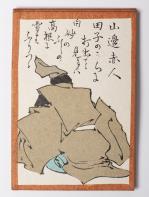 山邊赤人
田子のうらに
打出て
見れは
白妙の
ふしの
高根に
雪は
ふりつゝ